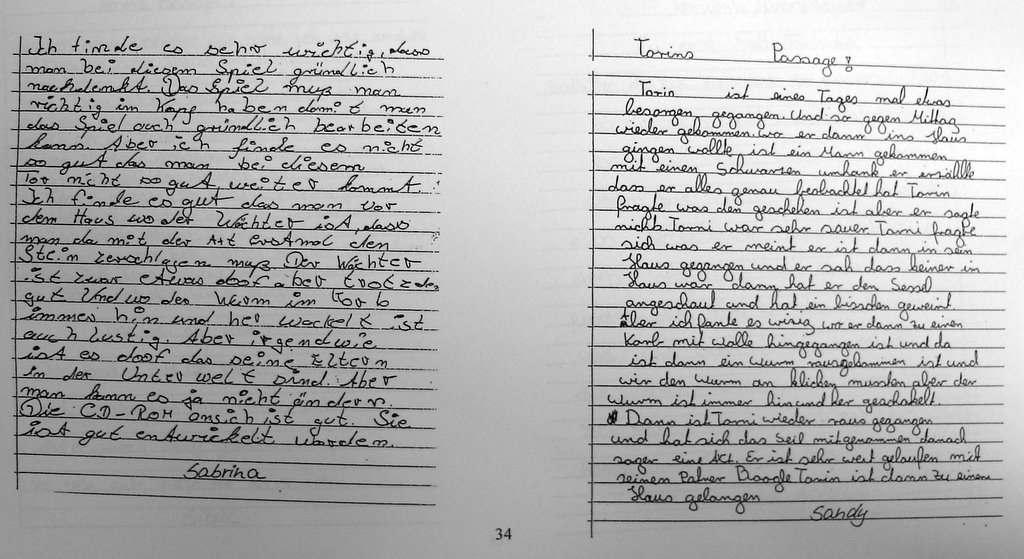 Ich finde es sehr wichtig, dass
man bei diesem Spiel gründlich
nachdenkt. Das Spiel muß man
richtig im Kopf haben damit man
das Spiel auch gründlich bearbeiten
kann. Aber ich finde es nicht
so gut das man bei diesem
Tor nicht so gut, weiter kommt.
Ich finde es gut das man vor
dem Haus wo der Wächter ist, dass
man da mit der Axt Erstmal den
Stein zerschlagen muß. Der Wächter
ist zwar etwas doof aber trotzdem
gut Und wo der Wurm im Korb
immer hin und her wackelt ist
auch lustig. Aber irgendwie
ist es doof das seine Eltern
in der Unter welt sind. Aber
man kann es ja nicht ändern.
Die CD-ROM ansich ist gut. Sie
ist gut entwickelt worden.
Sabrina
Torins Passage!
Torin ist eines Tages mal etwas
besorgen gegangen. Und so gegen Mittag
wieder gekommen. wo er dann ins Haus
gingen wollte ist ein Mann gekommen
mit einen Schwarzen umhank er erzählte
dass er alles genau beobachtet hat Torin
fragte was den geschehen ist aber er sagte
nichts Torni war sehr sauer Torni fragte
sich was er meint er ist dann in sein
Haus gegangen und er sah dass keiner in
Haus war dann hat er den Sessel
angeschaut und hat ein bisschen geweint
Aber ich fante es witzig wo er dann zu einen
Korb mit wolle hingegangen ist und da
ist dann ein Wurm rausgekommen ist und
wir den Wurm an klicken mussten aber der
Wurm ist immer hin und her geschakelt.
Dann ist Torni wieder raus gegangen
und hat sich das Seil mitgenommen danach
sogar eine Axt. Er ist sehr weit gelaufen mit
seinen Patner Boogle Torin ist dann zu einem
Haus gelangen
Sandy
34